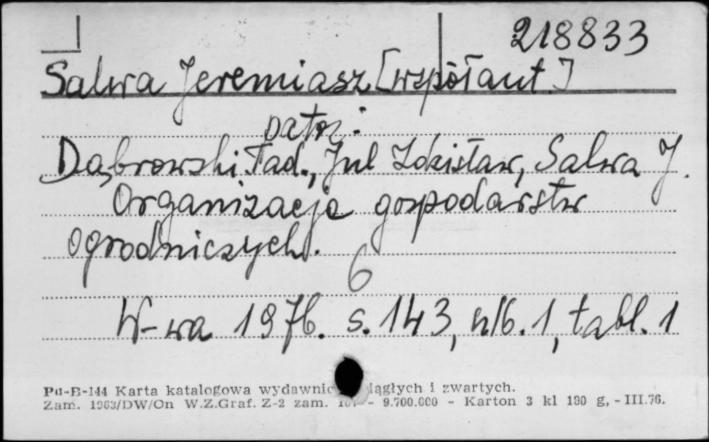 218833
Salwa Jeremiasz [współaut.]
patrz:
Dąbrowski Tad., Jul Zdzisław, Salwa J.
Organizacja gospodarstw
ogrodniczych.
6
W-wa 1976. s. 143, nlb. 1, tabl. 1
Pu-B-144 Karta katalogowa wydawnic ciągłych i zwartych.
Zam. 1963/DW/On W.Z.Graf. Z-2 zam. - 9.700.000 - Karton 3 kl 190 g, - III.76.